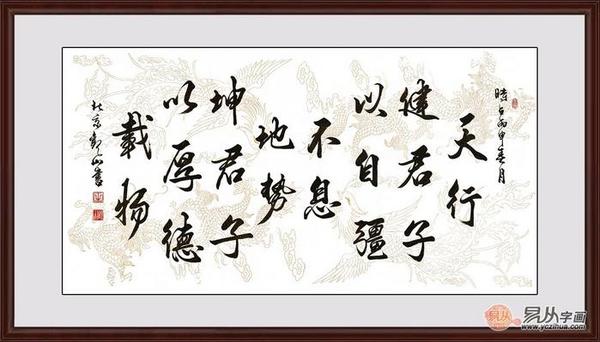 時在丙申春月
天行
健君子
以自疆
不息
地勢
坤君子
以厚德
載物
北京山書
易从字画
www.yczihua.com